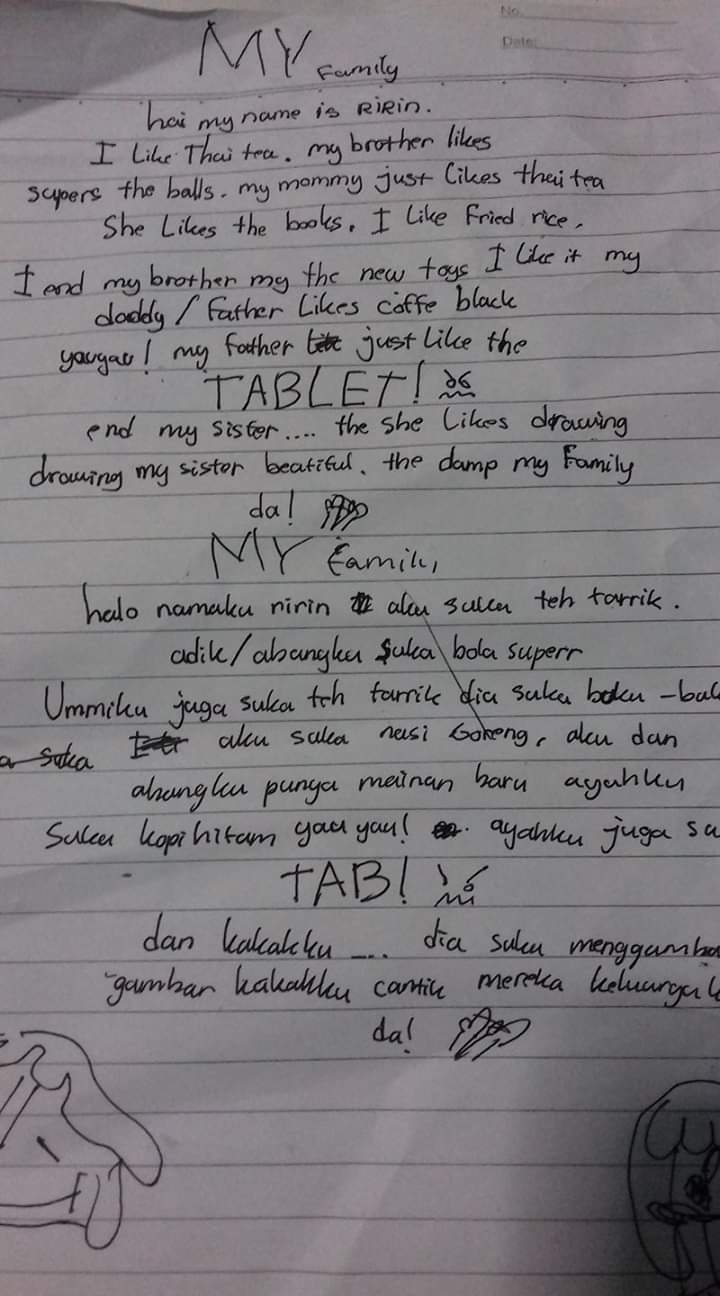 No.
Date:
MY Family
hai my name is RiRin.
I Like Thai tea. my brother likes
supers the balls. my mommy just likes thai tea
She Likes the books. I Like Fried rice.
I and my brother my the new toys I like it my
daddy / Father Likes coffe black
yauyau! my father just Like the
TABLET!
end my sister.... the she Likes drawing
drawing my sister beatiful. the damp my Family
da!
MY Famili,
halo namaku ririn aku suka teh tarrik.
adik/abangku suka bola superr
Ummiku juga suka teh tarrik dia suka buku -buk
a suka aku suka nasi Goreng, aku dan
abangku punya mainan baru ayahku
Suka kopi hitam yau yau! ayahku juga su
TAB!
dan kakakku .... dia suka menggamba
-gambar kakakku cantik mereka keluargak
da!